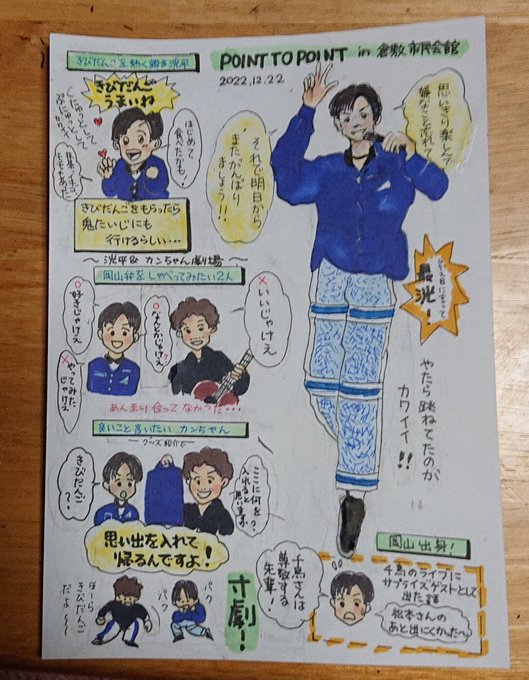 POINT TO POINT in 倉敷市民会館
2022.12.22
きびだんごを熱く語る洸平
きびだんご
うまいね
はじめて
食べたかも!
きびだんごをもらったら
鬼たいじにも
行けるらしい…
思いきり楽しんで
嫌なこと忘れて
それで明日から
またがんばり
ましょう!!
〜洸平& カンちゃん劇場〜
岡山弁をしゃべってみたい2人
○好きじゃけえ
×やってみた
じゃけえ
○なんとかじゃけえ
×いいじゃけえ
あんまり合ってなかった…
最洸!
やたら跳ねてたのが
カワイイ!!
良いこと言いたい カンちゃん
グッズ紹介で
きびだんご
?
ここに何を
入れると
思いますか?
思い出を入れて
帰るんですよ!
ほーら
きびだんご
だよ〜
パク
パク
寸劇!
岡山出身!
千鳥さんは
尊敬する
先輩!
千鳥のライブに
サプライズゲストとして
出た話
松本さんの
あと出にくかった〜